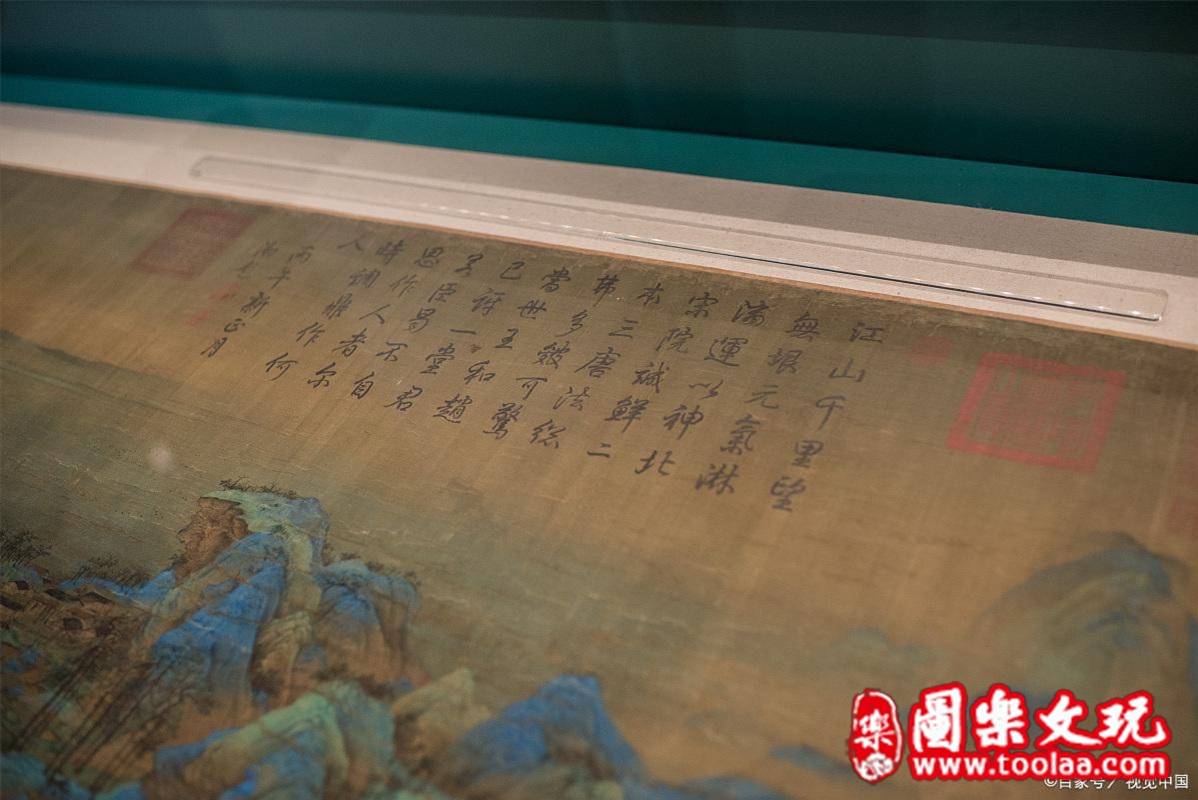 江山千里望
無垠元氣淋
漓運以神北
宋院誠鮮二
本三唐法總
弗多皴可驚
當世王和趙
已訝一堂君
若臣曷不自
思作人者爾
時調鼎作何
人
丙午新正月
御題
樂
圖樂文玩
www.toolaa.com
©百家号/视觉中国